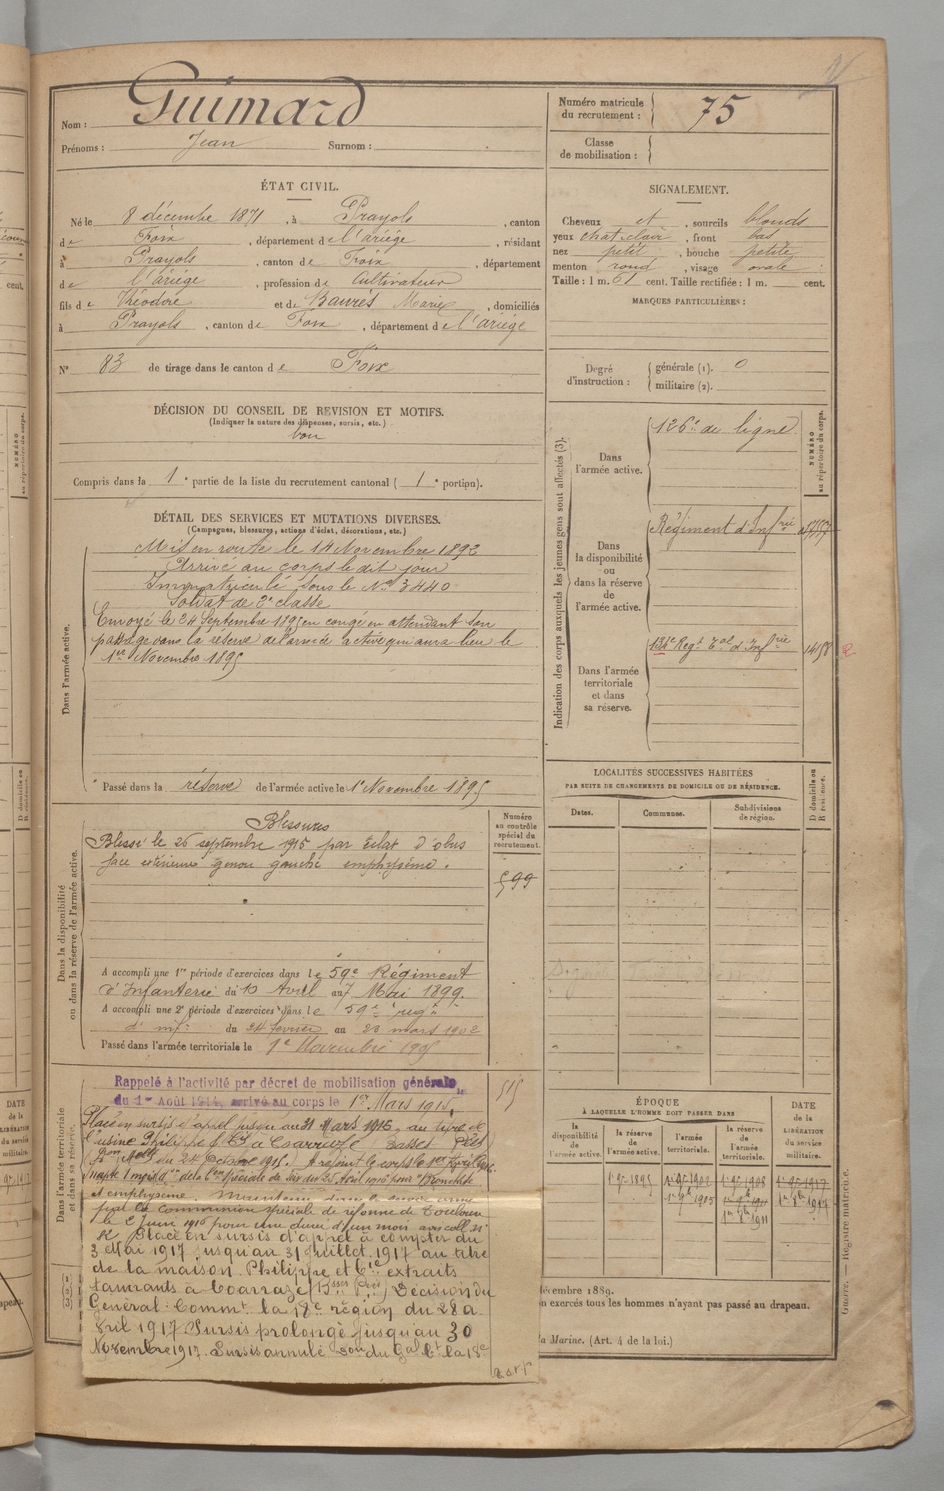 Nom : Guimard
Prénoms : Jean Surnom :
Numéro matricule du recrutement : 75
Classe de mobilisation :
ÉTAT CIVIL.
Né le 8 décembre 1871, à Prayols, canton
de Foix, département de l'ariége, résidant
à Prayols, canton de Foix, département
de l'ariége, profession de Cultivateur
fils de Théodore et de Baurès Marie, domiciliés
à Prayols, canton de Foix, département de l'ariége
N° 83 de tirage dans le canton de Foix
SIGNALEMENT.
Cheveux et, sourcils blonds
yeux chat. clair, front bas
nez petit, bouche petite
menton rond, visage ovale
Taille : 1 m. 61 cent. Taille rectifiée : 1 m. cent.
MARQUES PARTICULIÈRES :
Degré d'instruction :
générale (1). 0
militaire (2).
DÉCISION DU CONSEIL DE REVISION ET MOTIFS.
(Indiquer la nature des dispenses, sursis, etc.)
bon
Compris dans la 1e partie de la liste du recrutement cantonal (1e portion).
DÉTAIL DES SERVICES ET MUTATIONS DIVERSES.
(Campagnes, blessures, actions d'éclat, décorations, etc.)
Dans l'armée active.
Mis en route le 14 Novembre 1892
Arrivé au corps le dit jour
Immatriculé sous le No 3440
Soldat de 2e classe
Envoyé le 24 Septembre 1895 en congé en attendant son
passage dans la réserve de l'armée active qui aura lieu le
1er Novembre 1895
Passé dans la réserve de l'armée active le 1er Novembre 1895
Indication des corps auxquels les jeunes gens sont affectés (3).
NUMÉRO au répertoire du corps.
Dans l'armée active.
126e de ligne
Dans la disponibilité ou dans la réserve de l'armée active.
Régiment d'Infrie
Dans l'armée territoriale et dans sa réserve.
Regt Tal d'Infrie 1458
LOCALITÉS SUCCESSIVES HABITÉES
PAR SUITE DE CHANGEMENTS DE DOMICILE OU DE RÉSIDENCE.
Dates. Commune. Subdivisions de région. D domicile ou R résidence.
Dans la disponibilité ou dans la réserve de l'armée active.
Numéro au contrôle spécial du recrutement.
599
Blessures
Blessé le 26 septembre 1915 par éclat d'obus
face extérieure genou gauche emphysème.
A accompli une 1re période d'exercices dans le 59e Régiment
d'Infanterie du 10 Avril au 7 Mai 1899.
A accompli une 2e période d'exercices dans le 59e regt
d'inf. du 24 fevrier au 23 mars 1902
Passé dans l'armée territoriale le 1er Novembre 1905
Dans l'armée territoriale et dans sa réserve.
515
Rappelé à l'activité par décret de mobilisation générale
du 1er Août 1914, arrivé au corps le 1er Mars 1915.
Placé en sursis d'appel jusqu'au 31 Mars 1916, au titre de
l'usine Philippe & Cie à Coarraze Basses Pyr.
et emphysème. Maintenu dans le service armé
par la Commission spéciale de réforme de Toulouse
le 2 Juin 1916 pour une durée d'un mois
Placé en sursis d'appel à compter du
3 Mai 1917 jusqu'au 31 Juillet 1917 au titre
de la maison Philippe et Cie extraits
tannants à Coarraze (Bsses Pées) Décision du
Général Commt la 18e région du 28 a-
vril 1917. Sursis prolongé jusqu'au 30
Novembre 1917. Sursis annulé son du Gal Ct la 18e
ÉPOQUE
À LAQUELLE L'HOMME DOIT PASSER DANS
la disponibilité de l'armée active.
la réserve de l'armée active.
l'armée territoriale.
la réserve de l'armée territoriale.
DATE de la LIBÉRATION du service militaire.
décembre 1889.
n exercés tous les hommes n'ayant pas passé au drapeau.
la Marine. (Art. 4 de la loi.)
Guerre. — Registre matricule.